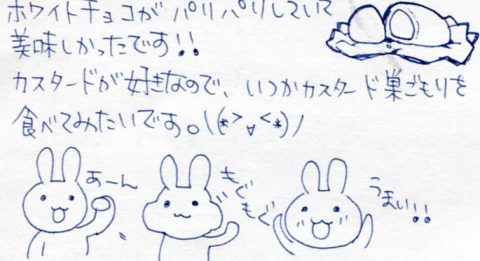 ホワイトチョコがパリパリしていて
美味しかったです!!
カスタードが好きなので、いつかカスタード巣ごもりを
食べてみたいです。\(*>∀<*)/
あーん
もぐもぐ
うまい!!